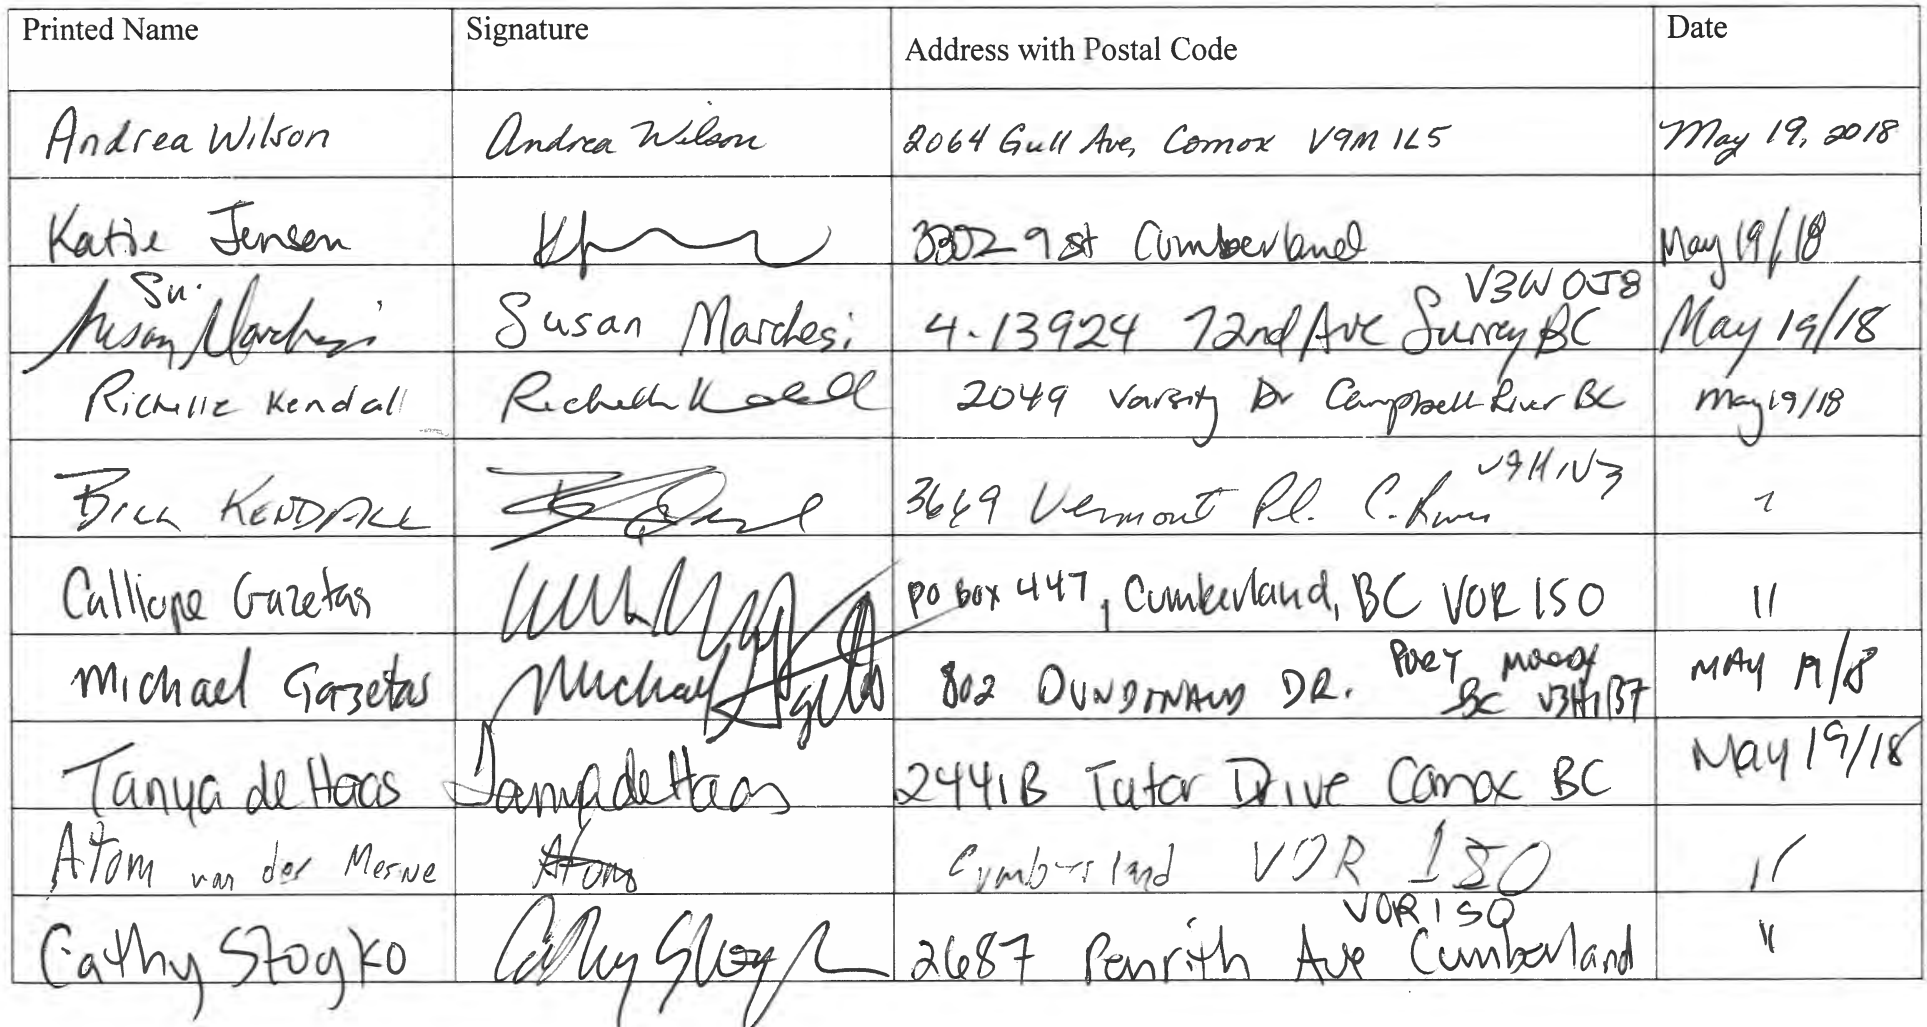 Printed Name Signature Address with Postal Code Date
Andrea Wilson Andrea Wilson 2064 Gull Ave, Comox V9M 1L5 May 19, 2018
Katie Jensen 3302 9 st Cumberland May 19/18
Su. V3W 0J8
Susan Marchesi Susan Marchesi 4-13924 72nd Ave Surrey BC May 19/18
Richelle Kendall Richelle Kendall 2049 Varsity Dr Campbell River BC May 19/18
V9H 1N3
Bill KENDALL Vermont Pl. C. River "
Calliope Gazetas PO box 447, Cumberland, BC V0R 1S0 "
Port Moody
Michael Gazetas Michael 802 DR. BC V3H 1B7 MAY 19/18
Tanya de Haas Tanya de Haas 2441B Tutor Drive Comox BC May 19/18
Atom van der Merwe Atom Cumberland V0R 1S0 "
V0R 1S0
Cathy Stoyko Cathy Stoyko 2687 Penrith Ave Cumberland "